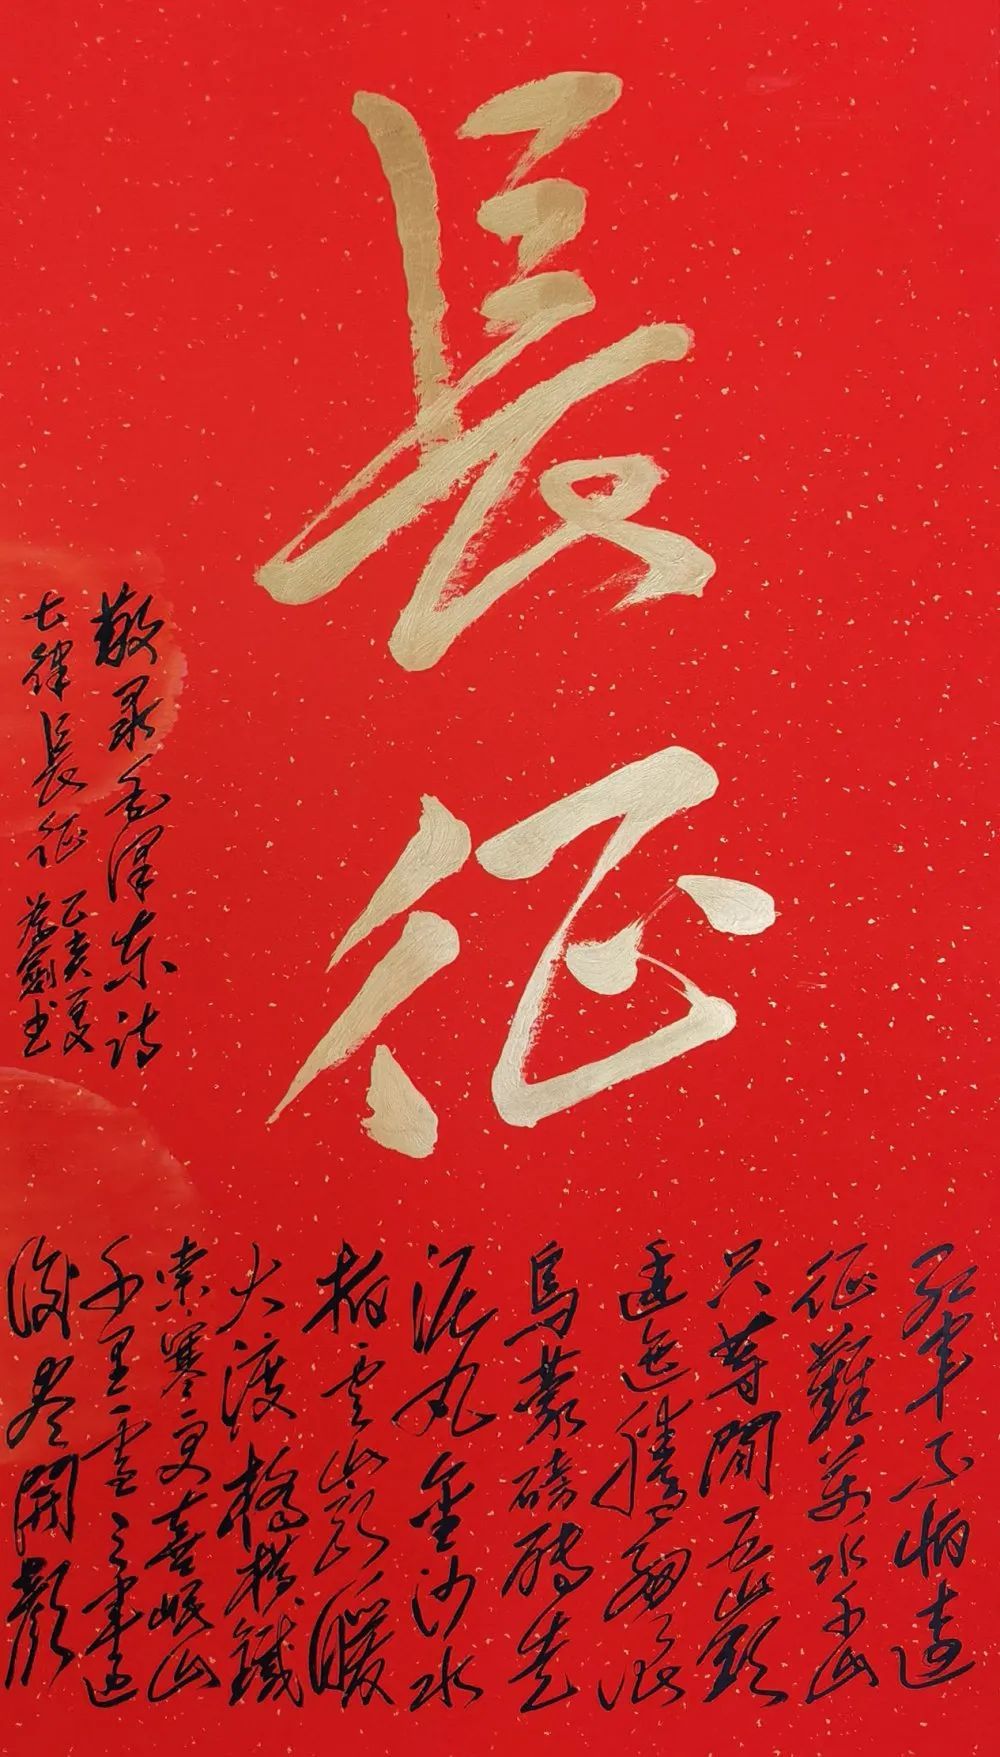 長征
紅軍不怕遠
征難萬水千山
只等閒五嶺
逶迤騰細浪
烏蒙磅礴走
泥丸金沙水
拍雲崖暖
大渡橋橫鐵
索寒更喜岷山
千里雪三軍過
後盡開顏
敬录毛澤东诗
七律長征
己亥夏
劍书